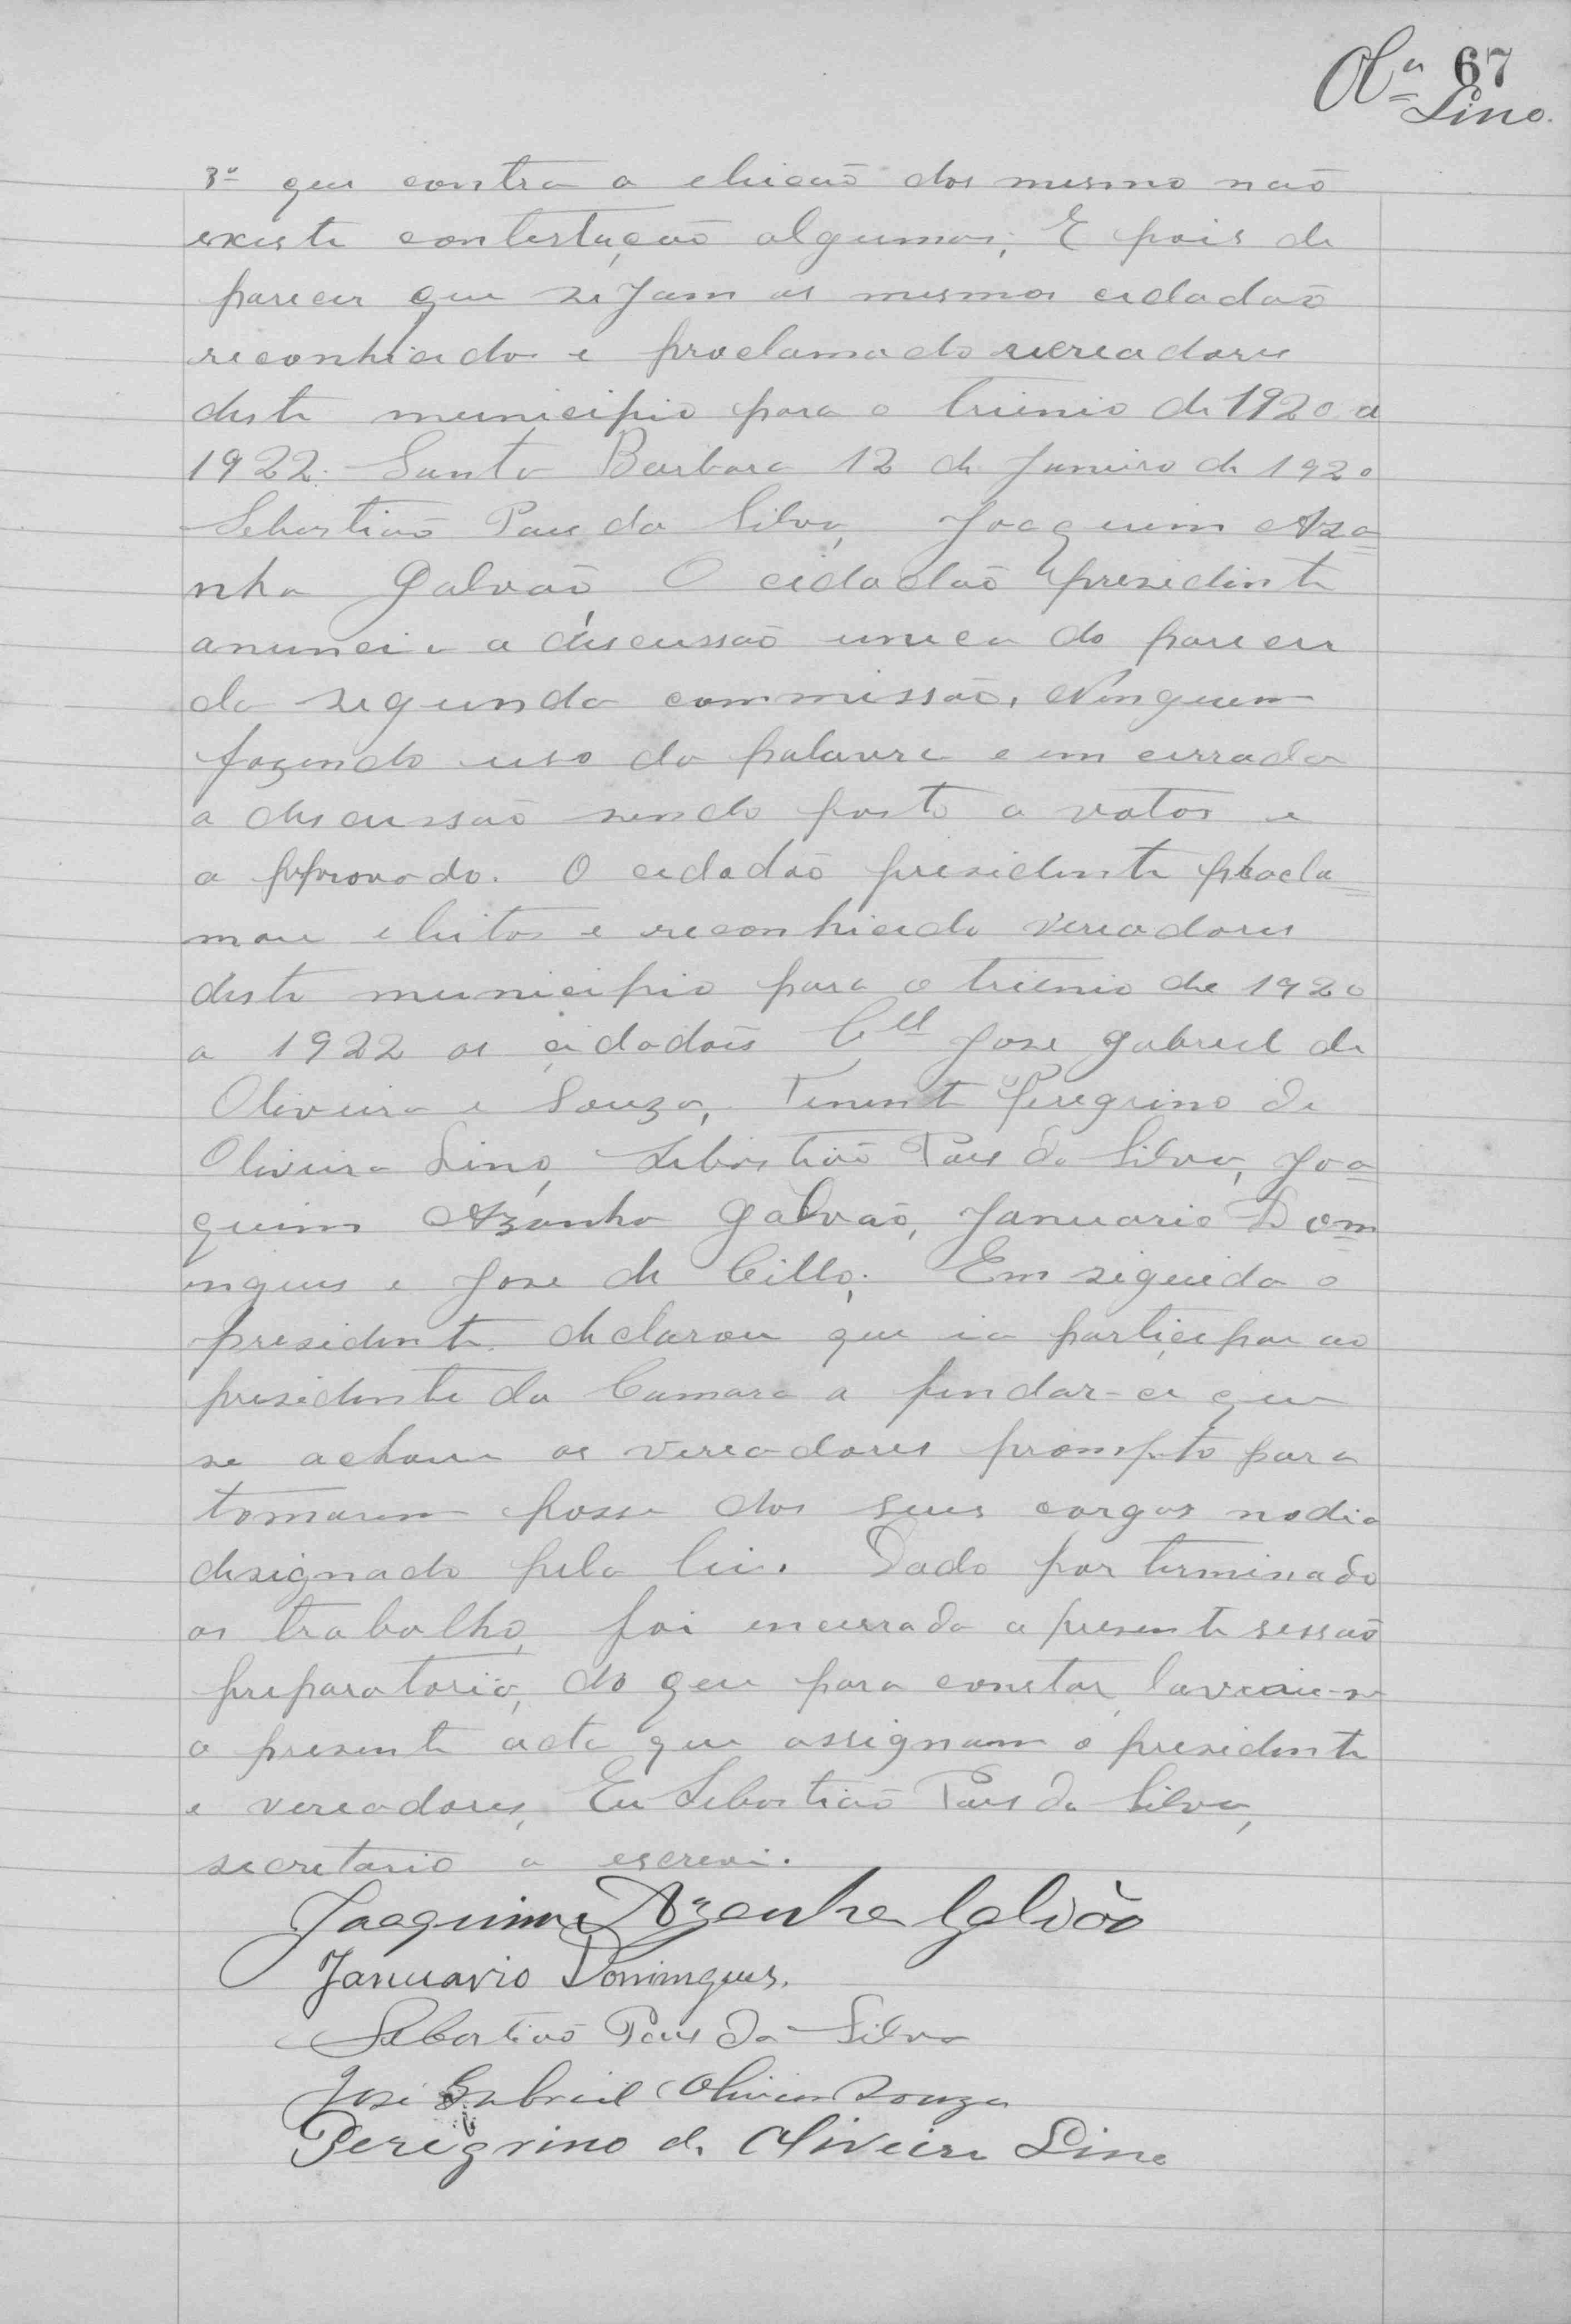 Olª 67
Lino.
3º que contra a eleicaõ dos mesmo naõ
existe contestaçaõ algumas; E pois de
parecer que sejam os mesmos cidadaõ
reconhecidos e proclamado vereadores
deste municipio para o trienio de 1920 a
1922. Santa Barbara 12 de Janeiro de 1920
Sebastiaõ Paes da Silva, Joaquim Aza=
nha Galvaõ, O cidadaõ presidente
anuncia a discussaõ unica do parecer
da segunda commissaõ. Ninguem
fazendo uso da palavra e em cerrada
a discussaõ sendo posto a votos e
a pprovado. O cidadaõ presidente procla=
mou eleitos e reconhecido vereadores
deste municipio para o trienio de 1920
a 1922 os cidadaõs Cell Jose Gabriel de
Oliveira e Souza, Tenente Peregrino de
Oliveira Lino, Sebastiaõ Paes da Silva, Joa=
quim Azanha Galvaõ, Januario Dom=
ingues e Jose de Cillo. Em seguida o
presidente declarou que ia participar ao
presidente da Camara a findar-ce que
se achava os vereadores prompto para
tomarem posse dos seus cargos no dia
designado pela lei. Dado por terminado
os trabalho, foi encerrada a presente sessaõ
preparatoria, do que para constar, lavrou-se
a presente acta que assignam o presidente
e vereadores, Eu Sebastiaõ Paes da Silva,
secretario a escrevi.
Joaquim Azanha Galvão
Januario Domingues.
Sebastiaõ Paes da Silva
José Gabriel Oliveira Souza
Peregrino de Oliveira Lino